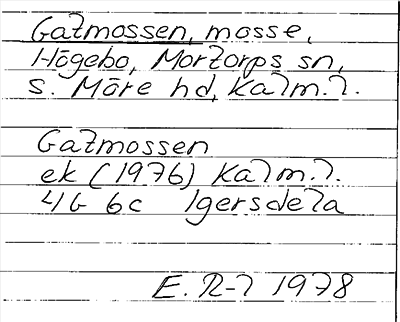 Gatmossen, mosse,
Högebo, Mortorps sn,
S. Möre hd, Kalm. l.
Gatmossen
ek (1976) Kalm. l.
4G 6c Igersdela
E. R-l 1978